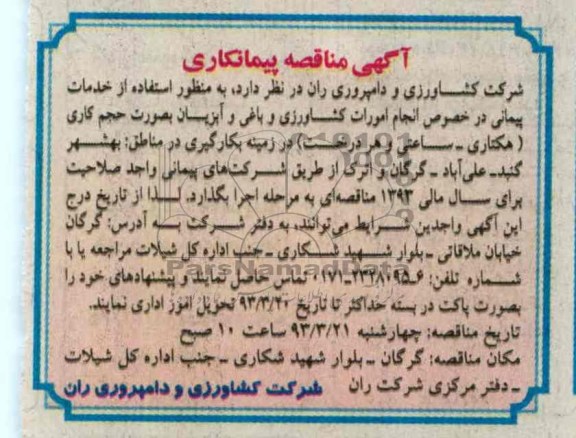 آگهی مناقصه پیمانکاری
شرکت کشاورزی و دامپروری ران در نظر دارد، به منظور استفاده از خدمات
پیمانی در خصوص انجام امورات کشاورزی و باغی و آبزیان بصورت حجم کاری
( هکتاری - ساعتی و هر درخت) در زمینه بکارگیری در مناطق: بهشهر
گنبد- علی‌آباد - گرگان و اترک از طریق شرکت‌های پیمانی واجد صلاحیت
برای سال مالی ۱۳۹۳ مناقصه‌ای به مرحله اجرا بگذارد. لذا از تاریخ درج
این آگهی واجدین شرایط می‌توانند، به دفتر شرکت به آدرس: گرگان
خیابان ملاقاتی - بلوار شهید شکاری - جنب اداره کل شیلات مراجعه یا با
شماره تلفن: تماس حاصل نمایند و پیشنهادهای خود را
بصورت پاکت در بسته حداکثر تا تاریخ ۹۳/۳/۲۰ تحویل امور اداری نمایند.
تاریخ مناقصه: چهارشنبه ۹۳/۳/۲۱ ساعت ۱۰ صبح
مکان مناقصه: گرگان - بلوار شهید شکاری - جنب اداره کل شیلات
- دفتر مرکزی شرکت ران شرکت کشاورزی و دامپروری ران
ParsNamadData